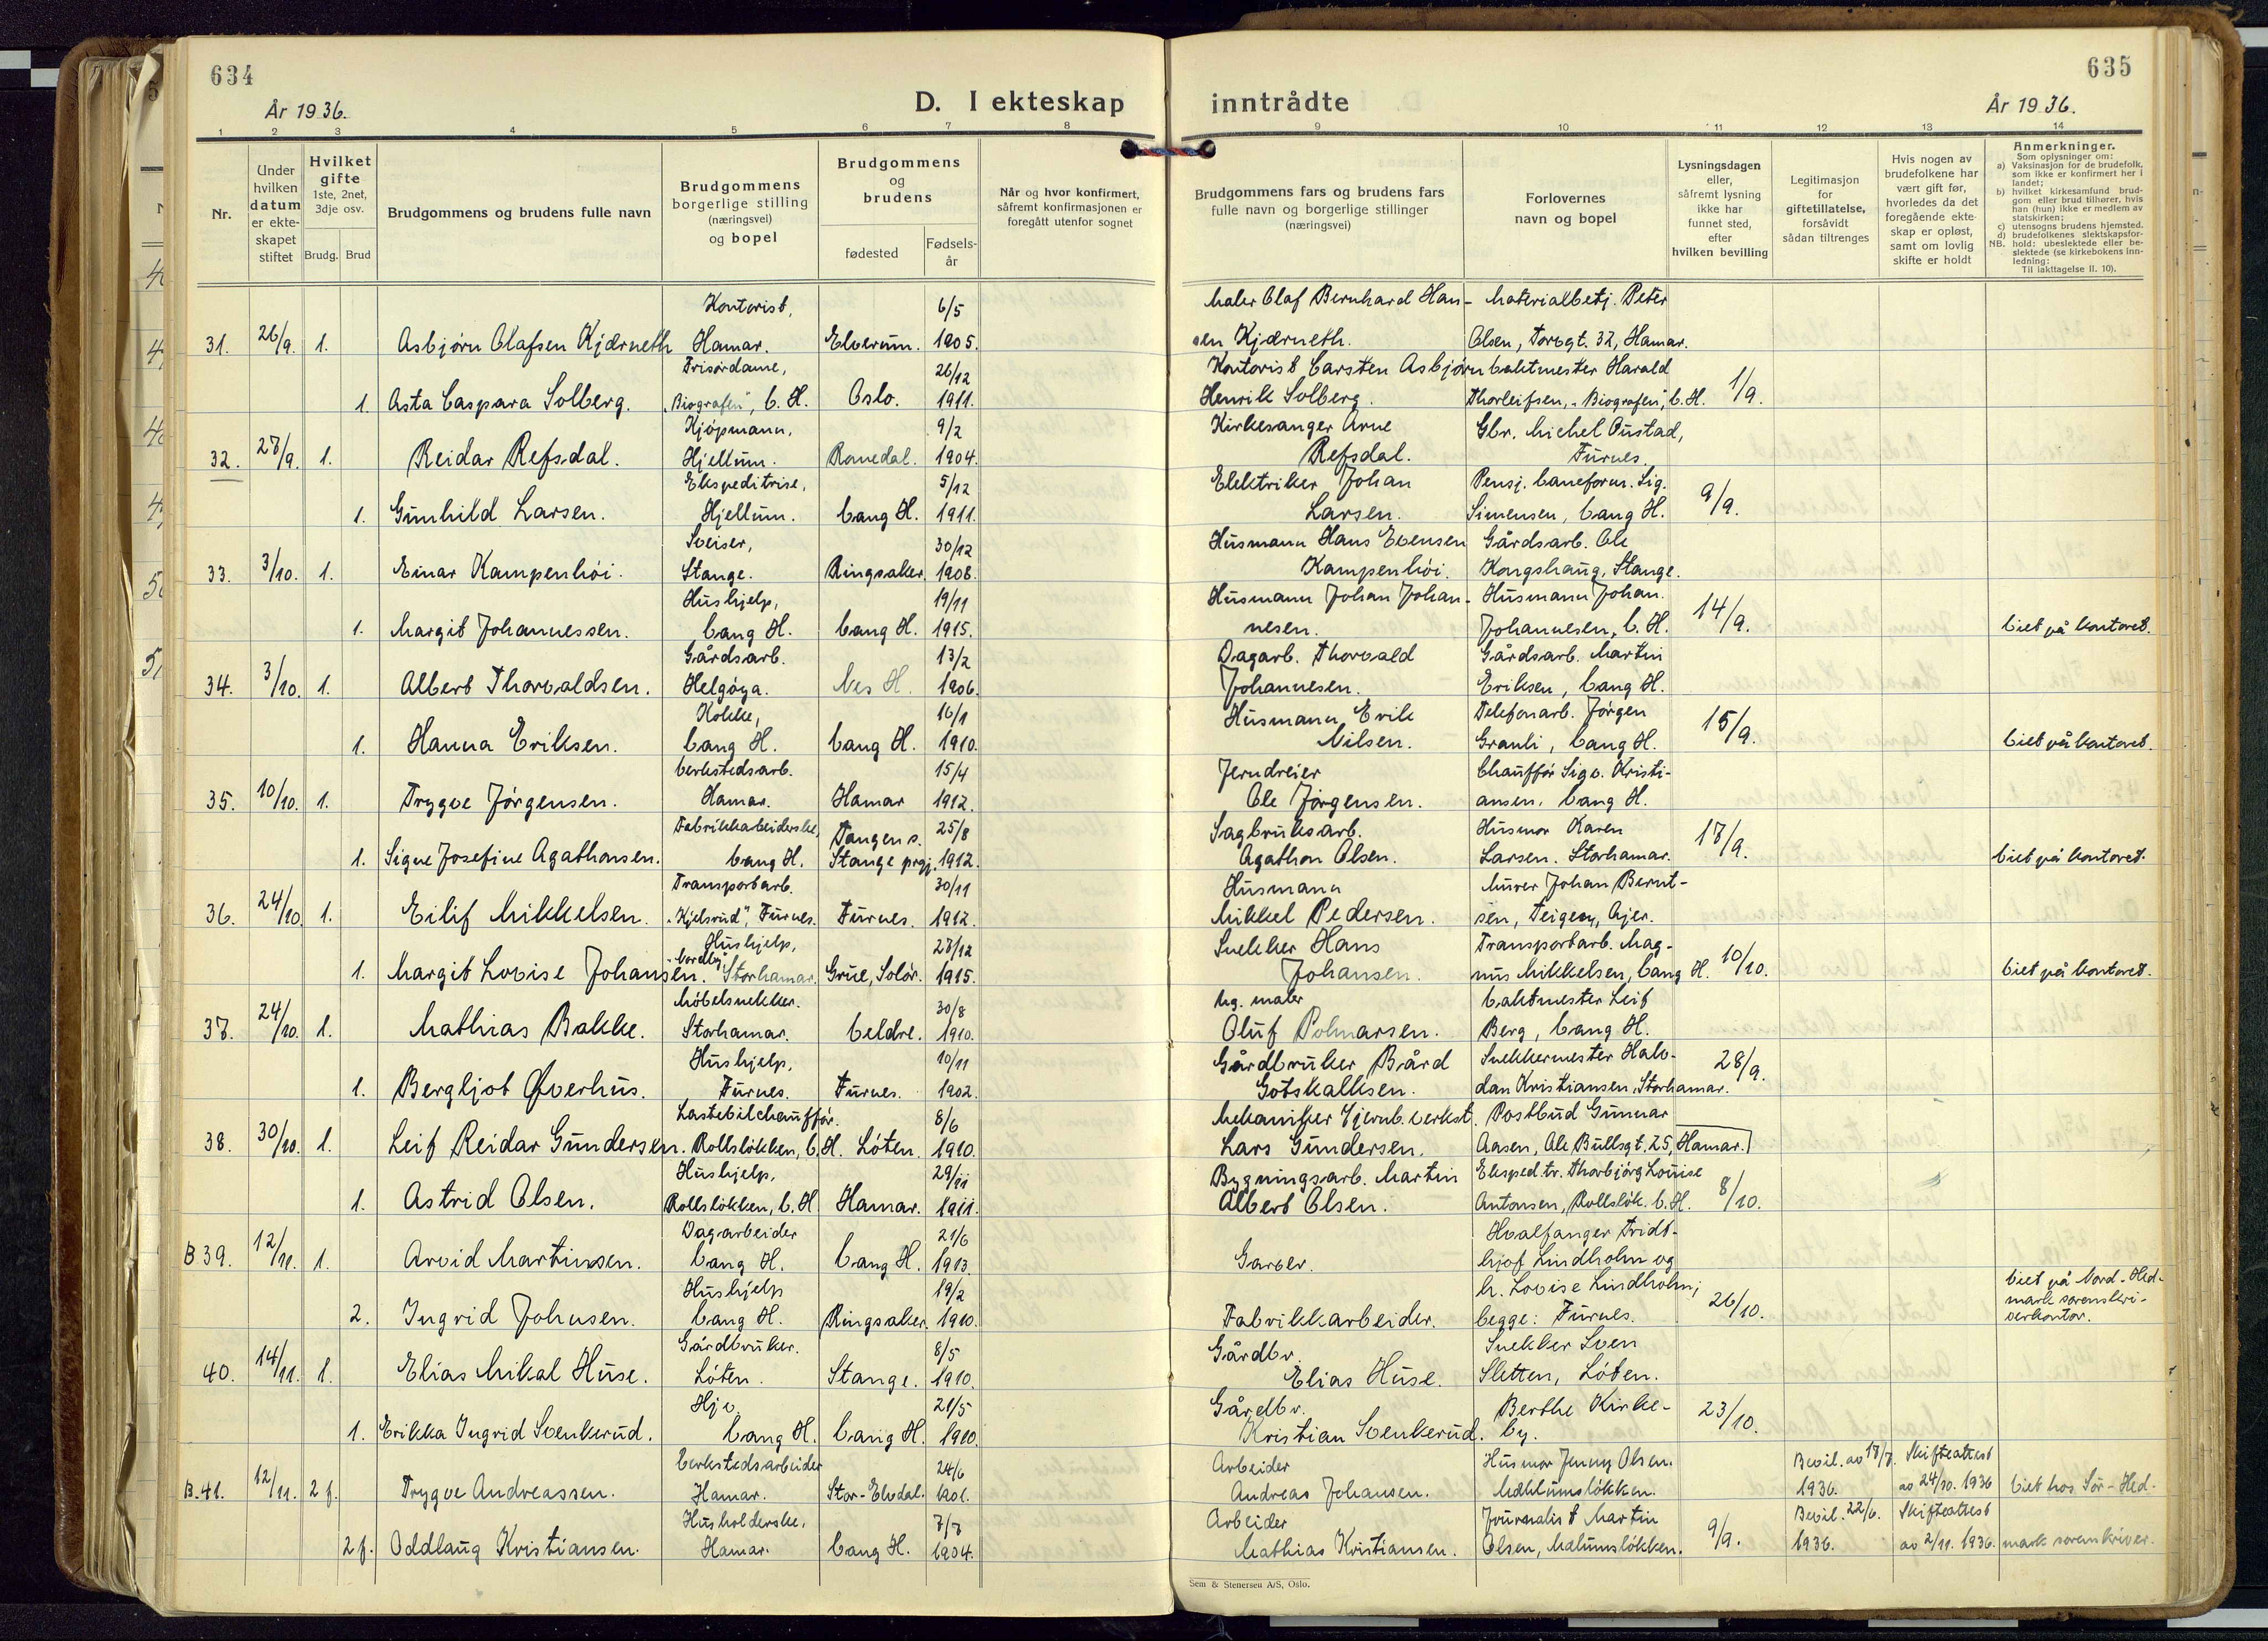 634
År 1936.
D. I ekteskap
inntrådte
635
År 1936.
1 2 3 4 5 6 7 8 9 10 11 12 13 14
Nr.
Under hvilken datum er ekte-skapet stiftet
Hvilket gifte 1ste, 2net, 3dje osv.
Brudg. Brud
Brudgommens og brudens fulle navn
Brudgommens borgerlige stilling (næringsvei) og bopel
Brudgommens og brudens
fødested
Fødsels-år
Når og hvor konfirmert, såfremt konfirmasjonen er foregått utenfor sognet
Brudgommens fars og brudens fars fulle navn og borgerlige stillinger (næringsvei)
Forlovernes navn og bopel
Lysningsdagen eller, såfremt lysning ikke har funnet sted, efter hvilken bevilling
Legitimasjon for giftetillatelse, forsåvidt sådan tiltrenges
Hvis nogen av brudefolkene har vært gift før, hvorledes da det foregående ekte-skap er opløst, samt om lovlig skifte er holdt
Anmerkninger.
Som oplysninger om:
a) Vaksinasjon for de brudefolk, som ikke er konfirmert her i landet;
b) hvilket kirkesamfund brud-gom eller brud tilhører, hvis han (hun) ikke er medlem av statskirken;
c) utensogns brudens hjemsted.
d) brudefolkenes slektskapsfor-
NB. hold: ubeslektede eller be-slektede (se kirkebokens inn-ledning:
Til iakttagelse II. 10).
Kontorist, 6/5 Maler Olaf Bernhard Han- Materialbetj. Peter
31. 26/9. 1. Asbjørn Olafsen Kjærneth Hamar. Elverum. 1905. sen Kjærneth. Olsen, Torvgt. 32, Hamar.
Frisørdame, 26/12 Kontorist Carsten Asbjørn Vaktmester Harald
1. Asta Caspara Solberg. "Biografen", V. H. Oslo. 1911. Henrik Solberg. Thorleifsen, "Biografen", V. H. 1/9.
Kjøpmann, 9/2 Kirkesanger Arne Gbr. Michel Pustad,
32. 27/9. 1. Reidar Refsdal. Hjellum. Romedal. 1904. Refsdal. Furnes.
Ekspeditrise, 5/12 Elektriker Johan Pensj. baneform. Sig.
1. Gunhild Larsen. Hjellum. Vang H. 1911. Larsen. Simensen, Vang H. 9/9.
Sveiser, 30/12 Husmann Hans Evensen Gårdsarb. Ole
33. 3/10. 1. Einar Kampenhøi. Stange. Ringsaker. 1908. Kampenhøi. Kongshaug, Stange.
Hushjelp, 19/11 Husmann Johan Johan- Husmann Johan
1. Margit Johannessen. Vang H. Vang H. 1915. nesen. Johannesen, V. H. 14/9. Viet på kontoret.
Gårdsarb. 13/2 Dagarb. Thorvald Gårdsarb. Martin
34. 3/10. 1. Albert Thorvaldsen. Helgøya. Nes H. 1906. Johannesen. Eriksen, Vang H.
Kokke, 16/1 Husmann Erik Telefonarb. Jørgen
1. Hanna Eriksen. Vang H. Vang H. 1910. Nilsen. Granli, Vang H. 15/9. Viet på kontoret.
Verkstedsarb. 15/4 Jerndreier Chauffør Sigv. Kristi-
35. 10/10. 1. Trygve Jørgensen. Hamar. Hamar 1912. Ole Jørgensen. ansen, Vang H.
Fabrikkarbeiderske, Tangen s. 25/8 Sagbruksarb. Husmor Karen
1. Signe Josefine Agathonsen. Vang H. Stange prgj. 1912. Agathon Olsen. Larsen. Storhamar. 17/9. Viet på kontoret.
Transportarb. 30/11 Husmann Murer Johan Bernt-
36. 24/10. 1. Eilif Mikkelsen. "Kjelsrud", Furnes. Furnes. 1912. Mikkel Pedersen. sen, Teigen, Ajer.
Hushjelp, 27/12 Snekker Hans Transportarb. Mag-
1. Margit Lovise Johansen. "Vardeby", Storhamar. Grue, Solør. 1915. Johansen. nus Mikkelsen, Vang H. 10/10. Viet på kontoret.
Møbelsnekker. 30/8 Hg. maler Vaktmester Leif
37. 24/10. 1. Mathias Bakke. Storhamar. Veldre. 1910. Oluf Polmarsen. Berg, Vang H.
Hushjelp, 10/11 Gårdbruker Bård Snekkermester Halv-
1. Bergljot Øverhus. Furnes. Furnes. 1902. Gotskalksen. dan Kristiansen, Storhamar. 28/9.
Lastebilchauffør. 8/6 Mekaniker Hjernb. verkst. Postbud Gunnar
38. 30/10. 1. Leif Reidar Gundersen. Rollsløkken, V. H. Løten. 1910. Lars Gundersen. Aasen, Ole Bullsgt. 25, Hamar.
Hushjelp, 29/11 Bygningsarb. Martin Eksped.tr. Thorbjørg Louise
1. Astrid Olsen. Rollsløkken, V. H. Hamar. 1911. Albert Olsen. Antonsen, Rollsløk. V. H. 8/10.
Dagarbeider 21/6 Hvalfanger Fridt-
B. 39. 12/11. 1. Arvid Martinsen. Vang H. Vang H. 1913. Garver. hjof Lindholm og
Hushjelp 19/2 h. Lovise Lindholm; Viet på Nord-Hed-
2. Ingrid Johnsen. Vang H. Ringsaker. 1910. Fabrikkarbeider. begge: Furnes. 26/10. mark sorenskri-
verkontor.
Gårdbruker. 8/5 Gårdbr. Snekker Sven
40. 14/11. 1. Elias Mikal Huse. Løten. Stange. 1910. Elias Huse. Sletten, Løten.
Hjv. 21/5 Gårdbr. Berthe Kirke-
1. Erikka Ingrid Svenkerud. Vang H. Vang H. 1910. Kristian Svenkerud. by. 23/10.
Verkstedsarbeider 24/6 Arbeider Husmor Jenny Olsen. Bevil. av 17/7. Skifteattest
B. 41. 12/11. 2 f. Trygve Andreassen. Hamar. Stor-Elvdal. 1901. Andreas Johansen. Mæhlumsløkken. 1936. av 24/10. 1936 Viet hos Sør-Hed-
Husholderske, 7/7 Arbeider Journalist Martin Bevil. 22/6. Skifteattest
2 f. Oddlaug Kristiansen. Hamar. Vang H. 1904. Mathias Kristiansen. Olsen, Mælumsløkken. 9/9. 1936. av 2/11. 1936. mark sorenskriver.
Sem & Stenersen A/S, Oslo.